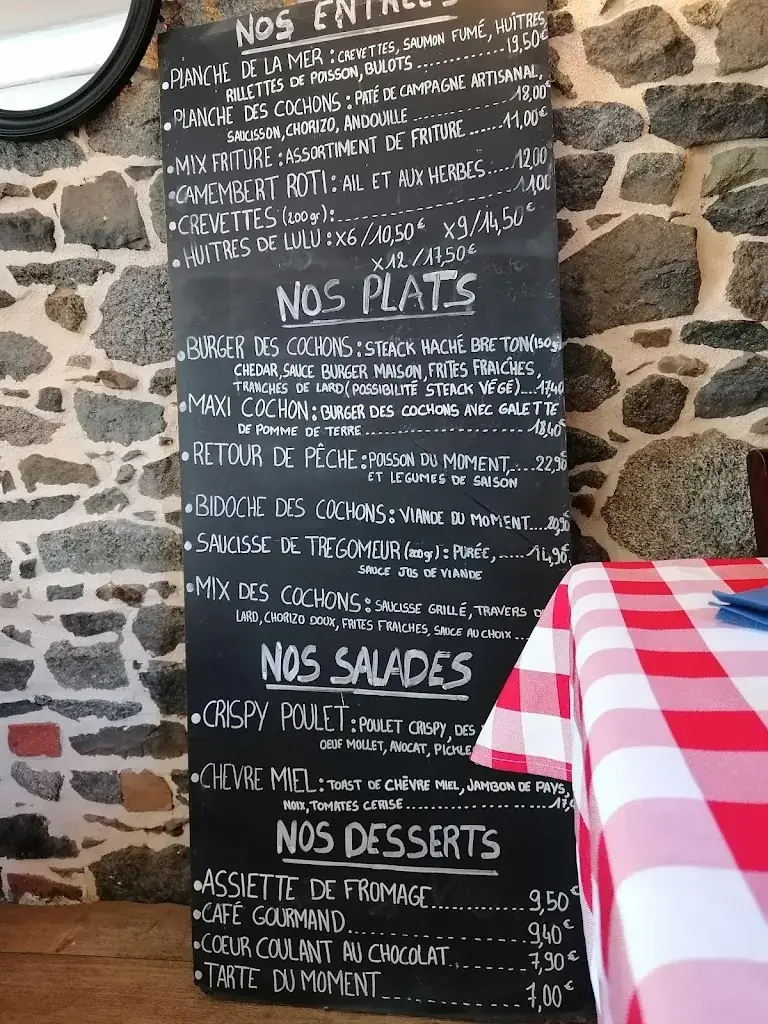 NOS ENTRÉES
•PLANCHE DE LA MER : CREVETTES, SAUMON FUMÉ, HUÎTRES,
RILLETTES DE POISSON, BULOTS ............ 19,50€
•PLANCHE DES COCHONS : PATÉ DE CAMPAGNE ARTISANAL,
SAUCISSON, CHORIZO, ANDOUILLE ............ 18,00€
•MIX FRITURE : ASSORTIMENT DE FRITURE ...... 11,00€
•CAMEMBERT ROTI : AIL ET AUX HERBES..... 12,00
•CREVETTES (200gr) :............ 11,00
•HUITRES DE LULU : X6/10,50€ X9/14,50€
X12/17,50€
NOS PLATS
•BURGER DES COCHONS : STEACK HACHÉ BRETON (150g)
CHEDAR, SAUCE BURGER MAISON, FRITES FRAICHES,
TRANCHES DE LARD (POSSIBILITÉ STEACK VÉGÉ)....17,40
•MAXI COCHON : BURGER DES COCHONS AVEC GALETTE
DE POMME DE TERRE............ 18,40€
•RETOUR DE PÊCHE : POISSON DU MOMENT,....22,90
ET LEGUMES DE SAISON
•BIDOCHE DES COCHONS : VIANDE DU MOMENT....20,90
•SAUCISSE DE TREGOMEUR (200gr) : PURÉE,.....14,90€
SAUCE JUS DE VIANDE
•MIX DES COCHONS : SAUCISSE GRILLÉ, TRAVERS
LARD, CHORIZO DOUX, FRITES FRAICHES, SAUCE AU CHOIX...
NOS SALADES
•CRISPY POULET : POULET CRISPY, DES
OEUF MOLLET, AVOCAT,
•CHEVRE MIEL : TOAST DE CHÈVRE MIEL, JAMBON DE PAYS,
NOIX, TOMATES CERISE............
NOS DESSERTS
•ASSIETTE DE FROMAGE............ 9,50€
•CAFÉ GOURMAND............ 9,40€
•COEUR COULANT AU CHOCOLAT............ 7,90€
•TARTE DU MOMENT............ 7,00€